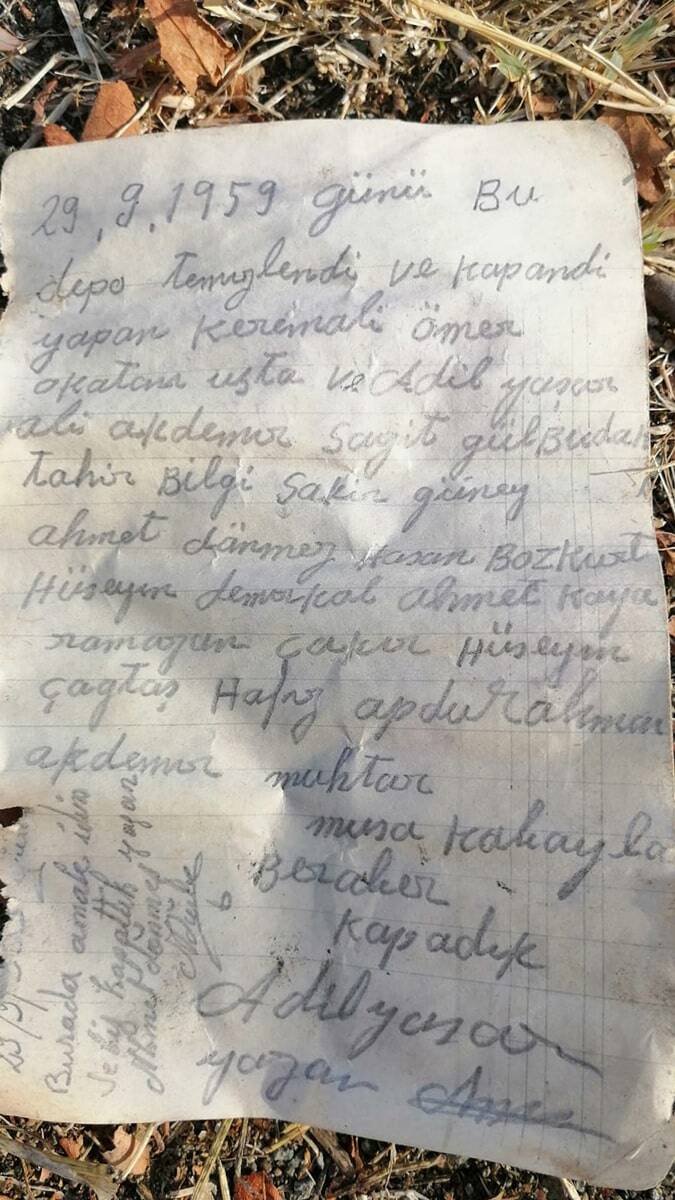 29.9.1959 günü Bu
depo temizlendi ve kapandi
yapan Keremali Ömer
akatan usta ve Adil yaşar
vali akdemir Sagit gülBudak
tahir Bilgi Şakir güney
ahmet dönmez Hasan Bozkurt
Hüseyin demirkal ahmet kaya
ramazan çakır Hüseyin
çagtaş Hafız apdurahman
akdemir muhtar
musa Kahayla
Beraber
Kapadık
Adil yaşar
yazan
Burada
kapattık yazan
Ahmet dönmez